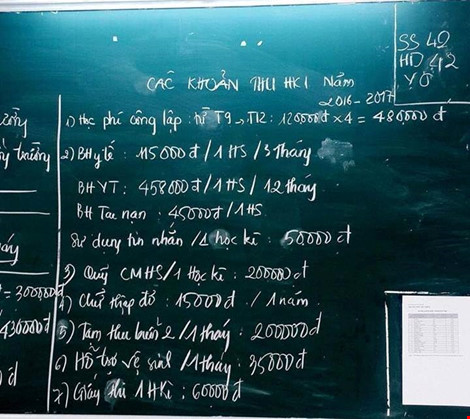 SS 42
HD 42
VÔ
CÁC KHOẢN THU HKI Năm
2016-2017
1) Học phí công lập: từ T9 → T12: 120000đ x 4 = 480,000 đ
2) BH y tế: 115000đ/1HS/3 tháng
BHYT: 458000đ/1HS/12 tháng
BH Tai nạn: 45000đ/1HS
Sử dụng tin nhắn/1 học kì: 50,000 đ
3) Quỹ CMHS/1 Học kì: 200000đ
4) Chữ thập đỏ: 15000đ/1 năm
5) Tạm thu buổi 2/1 tháng: 200000đ
6) Hỗ trợ vệ sinh/1 tháng: 35000đ
7) Giấy thi 1 HKì: 60000đ
trường
= 300000đ
430000đ